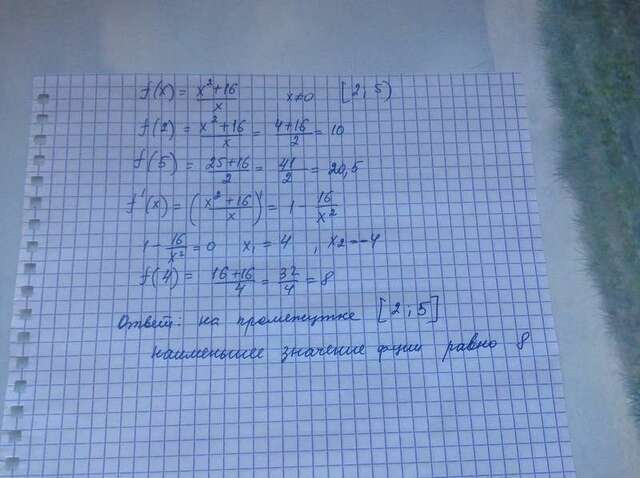 f(x) = (x²+16)/x x≠0 [2; 5)
f(2) = (x²+16)/x = (4+16)/2 = 10
f(5) = (25+16)/2 = 41/2 = 20,5
f'(x) = ((x²+16)/x)' = 1 - 16/x²
1 - 16/x² = 0 x₁ = 4 , x₂ = -4
f(4) = (16+16)/4 = 32/4 = 8
Ответ: на промежутке [2; 5]
наименьшее значение фции равно 8